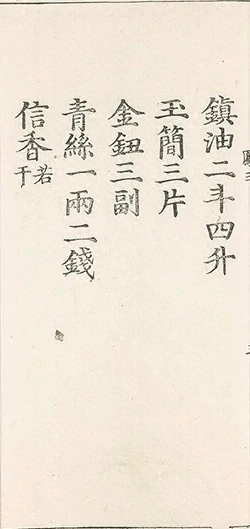 鎮油二斗四升
玉簡三片
金鈕三副
青絲一兩二錢
信香若干